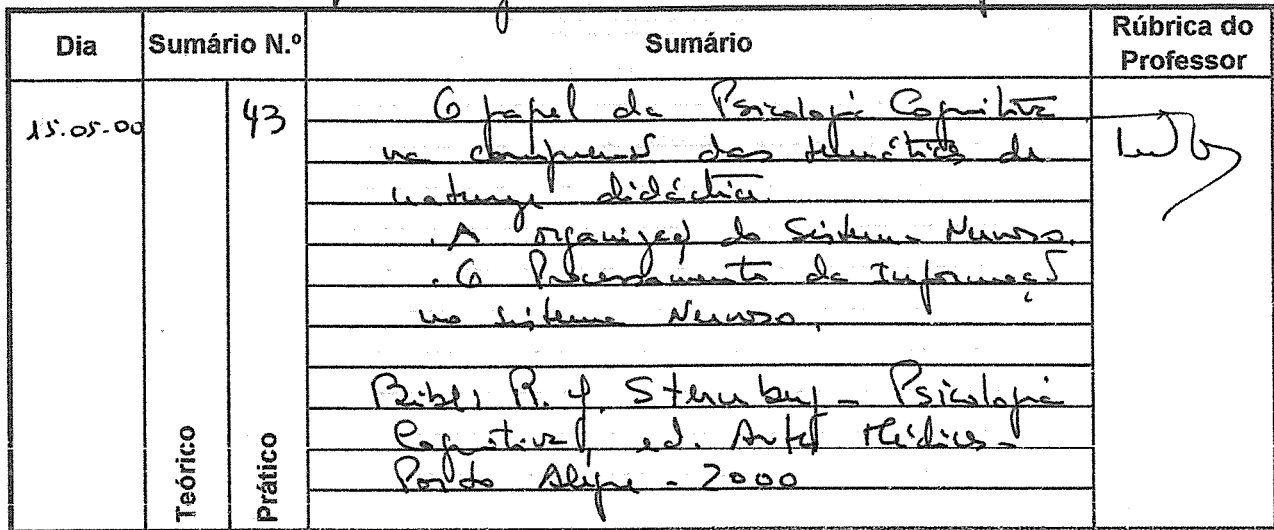 Dia
Sumário N.º
Sumário
Rúbrica do
Professor
15.05.00
43
O papel da Psicologia Cognitiva
na compreensão das temáticas de
natureza didáctica.
. A organização do Sistema Nervoso.
. O Processamento da Informação
no sistema Nervoso.
Bibl, R. J. Sternberg - Psicologia
Cognitiva, ed. Artes Médicas -
Porto Alegre - 2000
Teórico
Prático